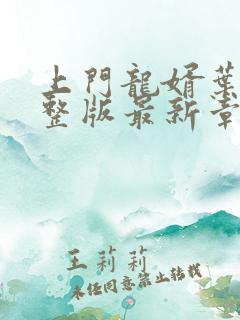 上門龍婿葉
整版最新章
王莉莉
未经同意禁止转载